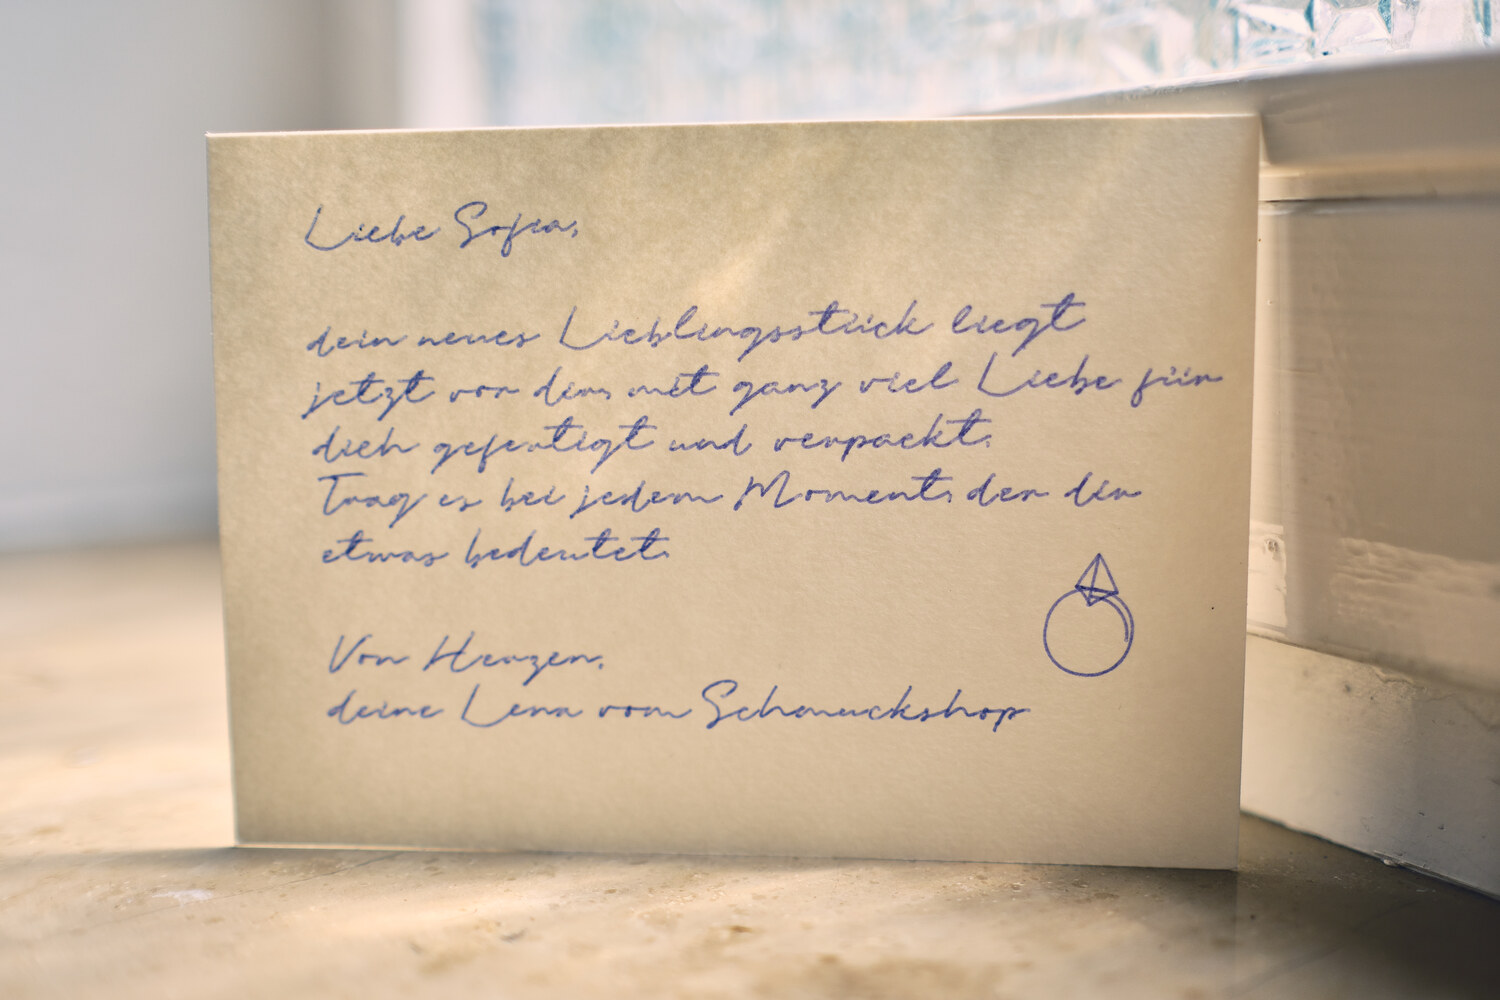 Liebe Sofia,
dein neues Lieblingsstück liegt
jetzt vor dir, mit ganz viel Liebe für
dich gefertigt und verpackt.
Trag es bei jedem Moment, der dir
etwas bedeutet.
Von Herzen,
deine Lena vom Schmuckshop